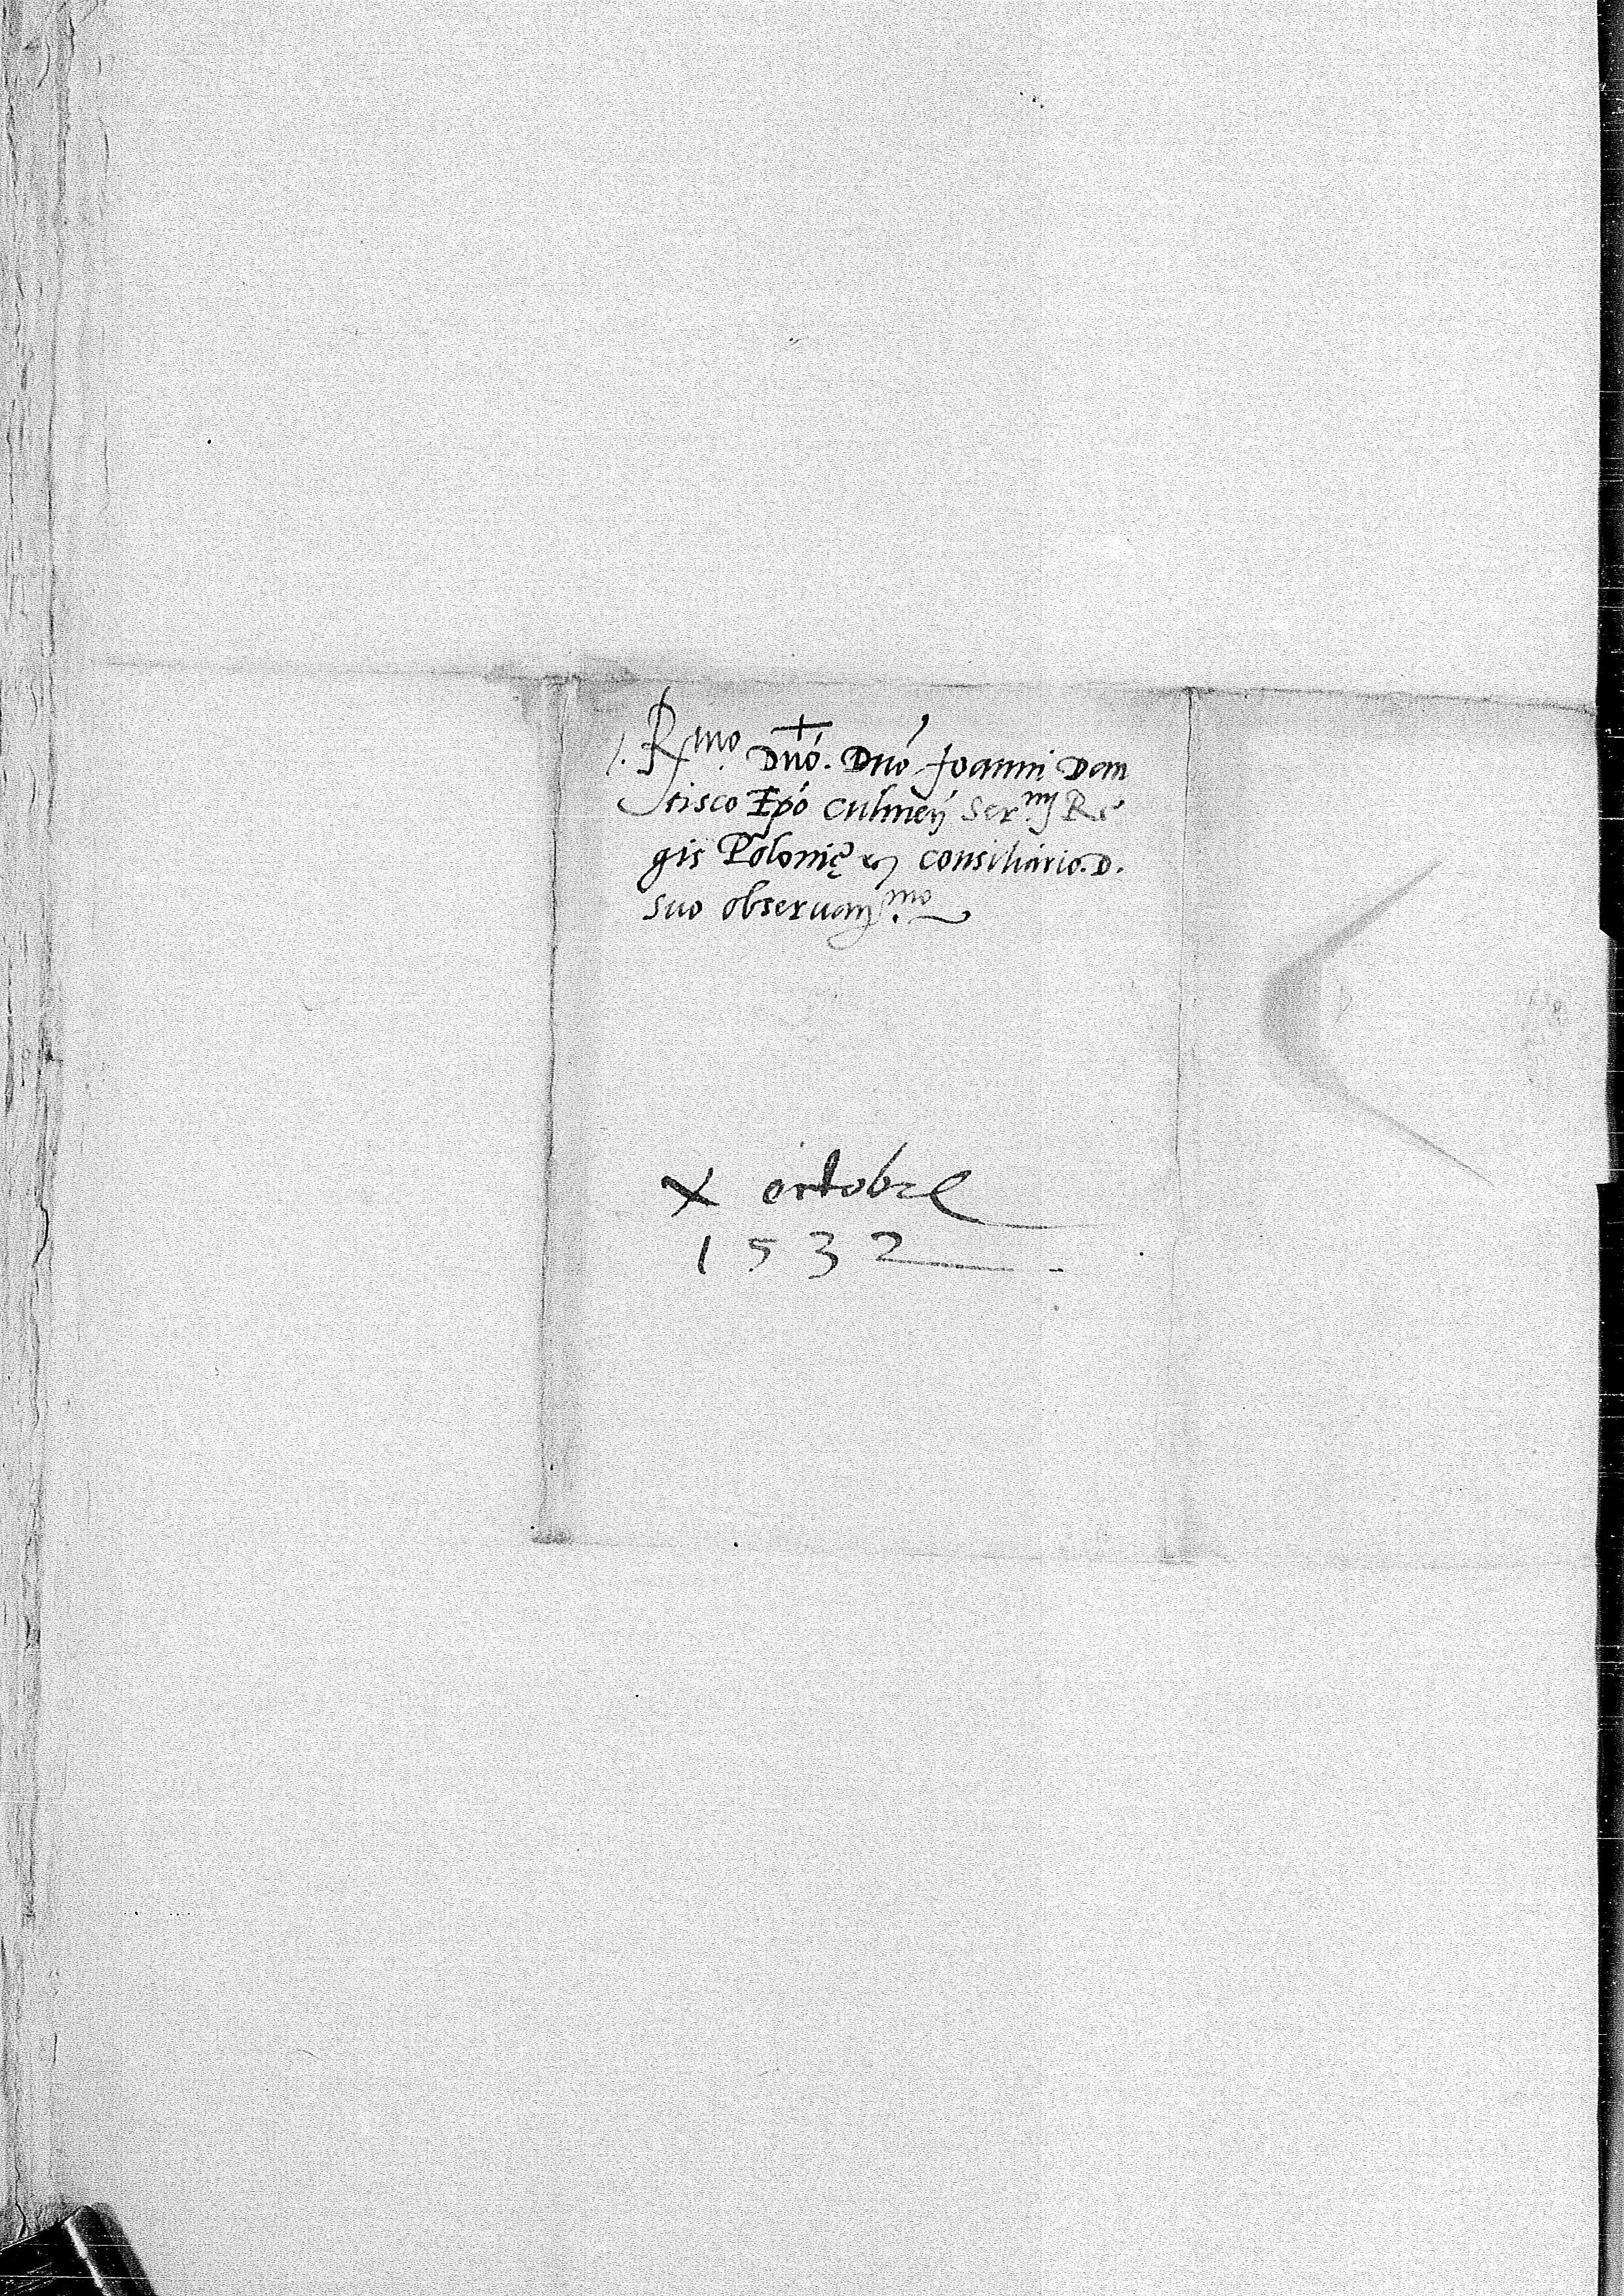 +
R.mo Dnó. Dnó Joanni Dan
tisco Epó Culmeñ Ser.mj Re
gis Polonię &c consiliario. D.
suo obseruan.mo
X octobre
1532